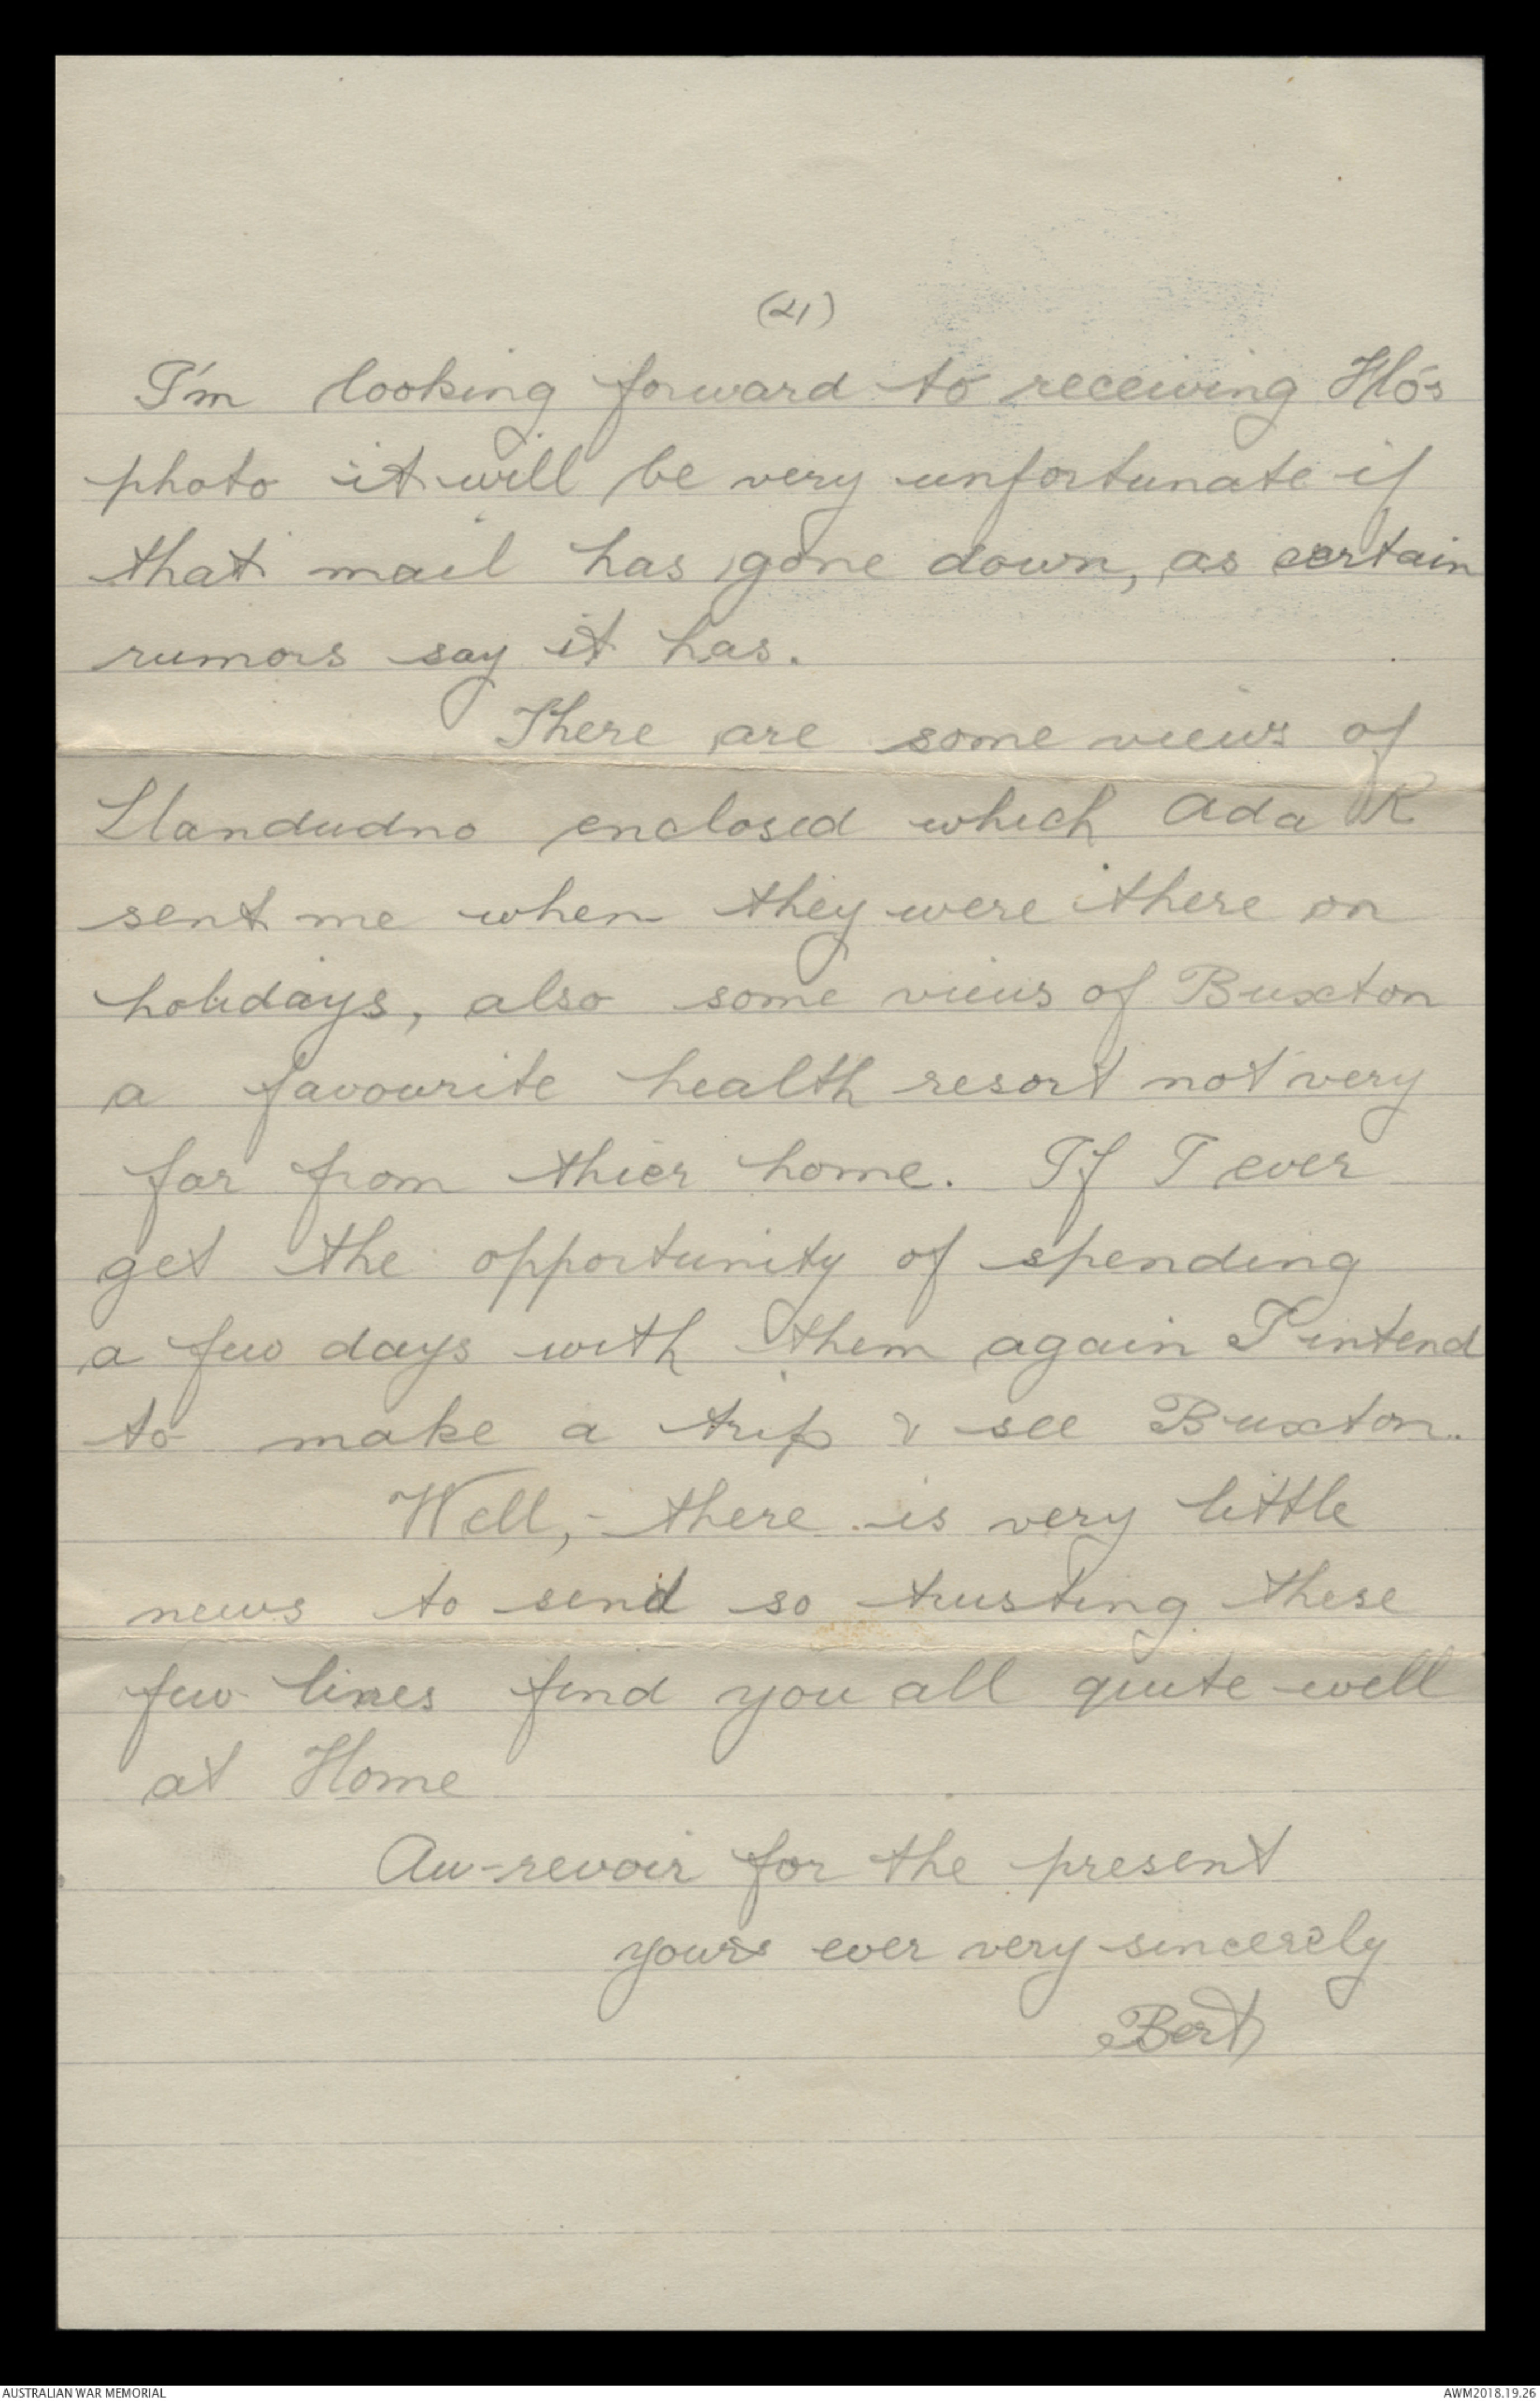 (4)
I'm looking forward to receiving Flo's
photo it will be very unfortunate if
that mail has gone down, as certain
rumors say it has.
There are some views of
Llandudno enclosed which Ada K
sent me when they were there on
holidays, also some views of Buxton
a favourite health resort not very
far from thier home. If I ever
get the opportunity of spending
a few days with them again I intend
to make a trip & see Buxton.
Well, - there is very little
news to send so trusting these
few lines find you all quite well
at Home
Au-revoir for the present
yours ever very sincerely
Bert
AUSTRALIAN WAR MEMORIAL
AWM2018.19.26